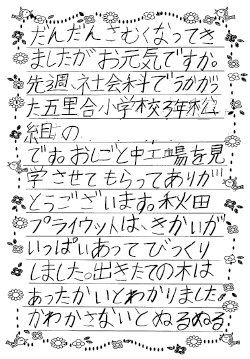 だんだんさむくなってき
ましたがお元気ですか。
先週、社会科でうかがっ
た五里合小学校3年松
組の
です。おしごと中工場を見
学させてもらってありが
とうございます。秋田
プライウットは、きかいが
いっぱいあってびっくり
しました。出きたての木は
あったかいとわかりました。
かわかさないとぬるぬる